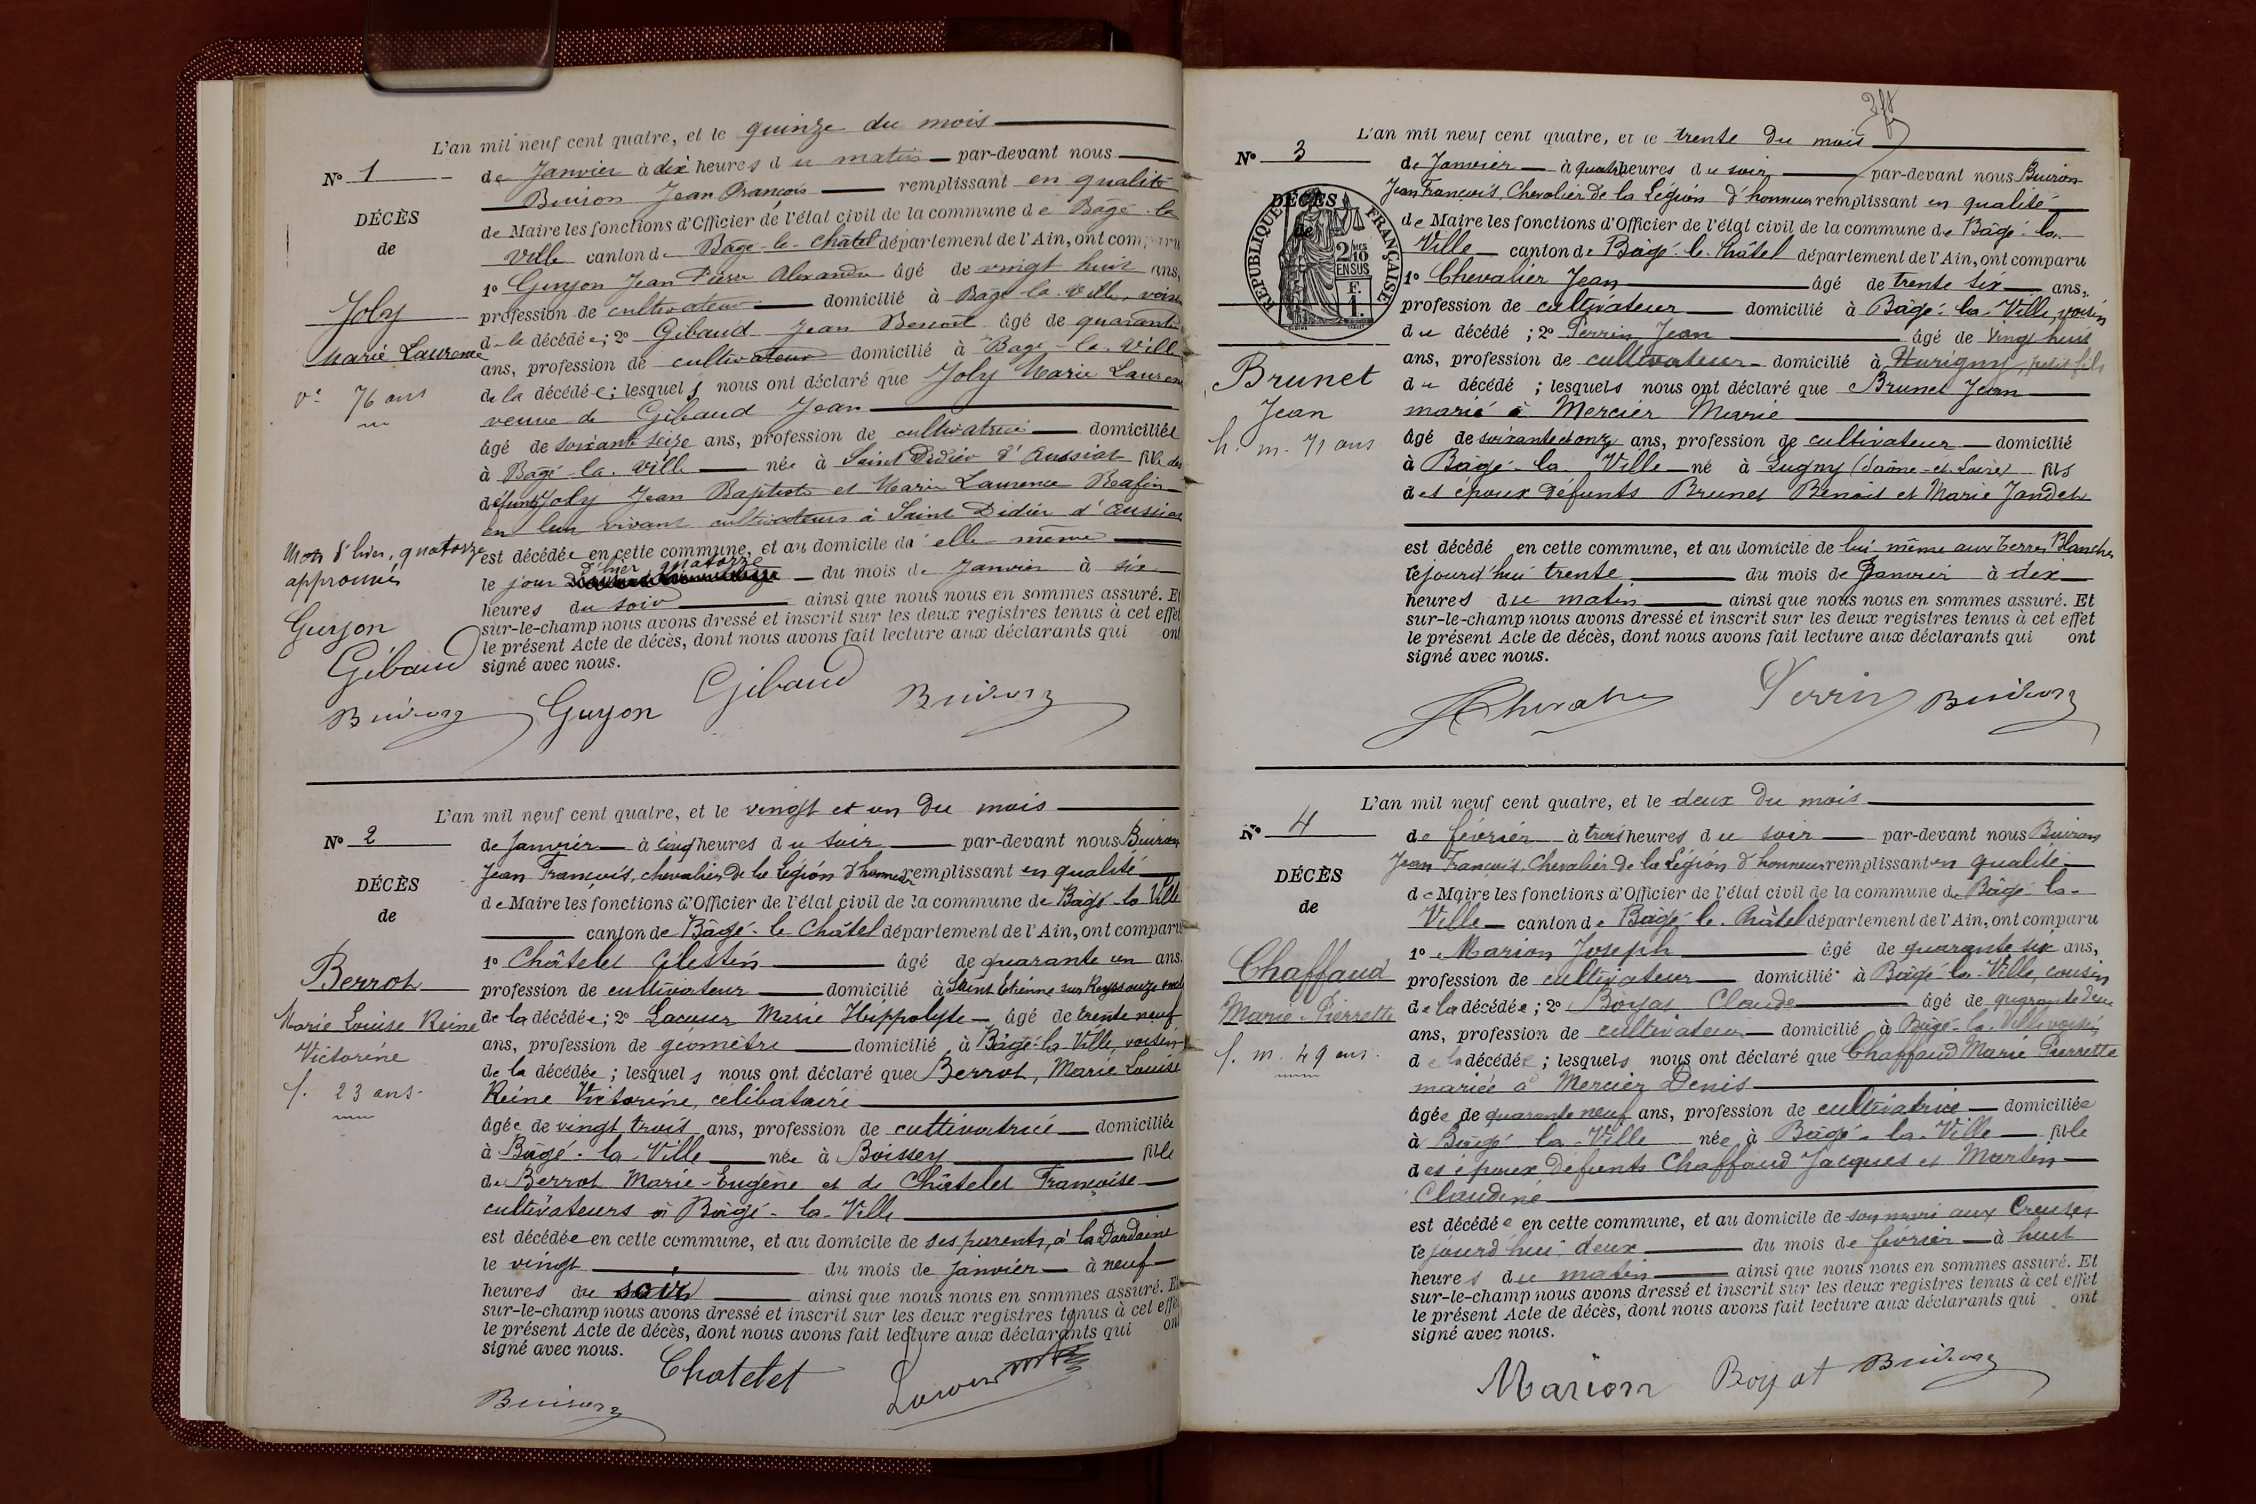 L'an mil neuf cent quatre, et le quinze du mois
N° 1
de Janvier à dix heures du matin par-devant nous
Buiron Jean François remplissant en qualité
DÉCÈS
de Maire les fonctions d'Officier de l'état civil de la commune de Bâgé-la
de
Ville canton de Bâgé-le-Châtel département de l'Ain, ont comparu
1° Guyon Jean Pierre Alexandre âgé de vingt huit ans,
Joly
profession de cultivateur domicilié à Bâgé-la-Ville, voisin
de la décédée; 2° Gibaud Jean Benoit âgé de quarante
Marie Laurence
ans, profession de cultivateur domicilié à Bâgé-la-Ville
ve 76 ans
de la décédée; lesquels nous ont déclaré que Joly Marie Laurence
veuve de Gibaud Jean
âgé de soixante seize ans, profession de cultivatrice domiciliée
à Bâgé-la-Ville née à Saint Didier d'Aussiat fille des
défunts Joly Jean Baptiste et Marie Laurence Rafin
en leur vivant cultivateurs à Saint Didier d'Aussiat
Mots d'hier, quatorze
approuvés
est décédée en cette commune, et au domicile d'elle même
d'hier quatorze
le jour du mois de Janvier à six
heures du soir ainsi que nous nous en sommes assuré. Et
sur-le-champ nous avons dressé et inscrit sur les deux registres tenus à cet effet
le présent Acte de décès, dont nous avons fait lecture aux déclarants qui ont
signé avec nous.
Guyon
Gibaud
Buiron Guyon Gibaud Buiron
L'an mil neuf cent quatre, et le vingt et un du mois
N° 2
de Janvier à cinq heures du soir par-devant nous Buiron
Jean François, chevalier de la Légion d'honneur remplissant en qualité
DÉCÈS
de Maire les fonctions d'Officier de l'état civil de la commune de Bâgé-la-Ville
de
canton de Bâgé-le-Châtel département de l'Ain, ont comparu
1° Châtelet Célestin âgé de quarante un ans,
Berrot
profession de cultivateur domicilié à Saint Etienne sur Reyssouze oncle
Marie Louise Reine
de la décédée; 2° Lacour Marie Hippolyte âgé de trente neuf
Victorine
ans, profession de géomètre domicilié à Bâgé-la-Ville, voisin
f. 23 ans
de la décédée; lesquels nous ont déclaré que Berrot, Marie Louise
Reine Victorine, célibataire
âgée de vingt trois ans, profession de cultivatrice domiciliée
à Bâgé-la-Ville née à Boissey fille
de Berrot Marie-Eugène et de Châtelet Françoise
cultivateurs à Bâgé-la-Ville
est décédée en cette commune, et au domicile de ses parents, à la Dardaine
le vingt du mois de janvier à neuf
heures du soir ainsi que nous nous en sommes assuré. Et
sur-le-champ nous avons dressé et inscrit sur les deux registres tenus à cet effet
le présent Acte de décès, dont nous avons fait lecture aux déclarants qui ont
signé avec nous.
Chatelet
Buiron
L'an mil neuf cent quatre, et le trente du mois
N° 3
de Janvier à quatre heures du soir par-devant nous Buiron
Jean François, Chevalier de la Légion d'honneur remplissant en qualité
DÉCÈS
de Maire les fonctions d'Officier de l'état civil de la commune de Bâgé-la-
de
Ville canton de Bâgé-le-Châtel département de l'Ain, ont comparu
RÉPUBLIQUE FRANÇAISE
2/10 EN SUS
F. 1.
1° Chevalier Jean âgé de trente six ans,
profession de cultivateur domicilié à Bâgé-la-Ville, voisin
du décédé; 2° Perrin Jean âgé de vingt huit
ans, profession de cultivateur domicilié à Hurigny, petit fils
Brunet
du décédé; lesquels nous ont déclaré que Brunet Jean
Jean
marié à Mercier Marie
h. m. 71 ans
âgé de soixante et onze ans, profession de cultivateur domicilié
à Bâgé-la-Ville né à Lugny (Saône-et-Loire) fils
des époux défunts Brunet Benoit et Marie Jandet
est décédé en cette commune, et au domicile de lui-même aux Terres Blanches
le jourd'hui trente du mois de Janvier à dix
heures du matin ainsi que nous nous en sommes assuré. Et
sur-le-champ nous avons dressé et inscrit sur les deux registres tenus à cet effet
le présent Acte de décès, dont nous avons fait lecture aux déclarants qui ont
signé avec nous.
Perrin Buiron
L'an mil neuf cent quatre, et le deux du mois
N° 4
de février à trois heures du soir par-devant nous Buiron
Jean François, Chevalier de la Légion d'honneur remplissant en qualité
DÉCÈS
de Maire les fonctions d'Officier de l'état civil de la commune de Bâgé-la-
de
Ville canton de Bâgé-le-Châtel département de l'Ain, ont comparu
1° Marion Joseph âgé de quarante six ans,
Chaffaud
profession de cultivateur domicilié à Bâgé-la-Ville, cousin
Marie-Pierrette
de la décédée; 2° Boyat Claude âgé de quarante deux
ans, profession de cultivateur domicilié à Bâgé-la-Ville voisin
f. m. 49 ans.
de la décédée; lesquels nous ont déclaré que Chaffaud Marie Pierrette
mariée à Mercier Denis
âgée de quarante neuf ans, profession de cultivatrice domiciliée
à Bâgé-la-Ville née à Bâgé-la-Ville fille
des époux défunts Chaffaud Jacques et Martin
Claudine
est décédée en cette commune, et au domicile de son mari aux Creuses
le jourd'hui deux du mois de février à huit
heures du matin ainsi que nous nous en sommes assuré. Et
sur-le-champ nous avons dressé et inscrit sur les deux registres tenus à cet effet
le présent Acte de décès, dont nous avons fait lecture aux déclarants qui ont
signé avec nous.
Marion Boyat Buiron